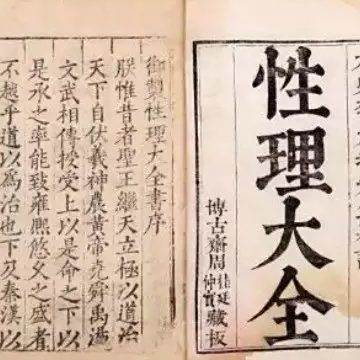 性理大全
博古齋周
藏板
御製性理大全書序
朕惟昔者聖王繼天立極以道治
天下自伏羲神農黃帝堯舜禹湯
文武相傳授受上以是命之下以
是承之率能致雍熙悠久之盛者
不越乎道以為治也下及秦漢以